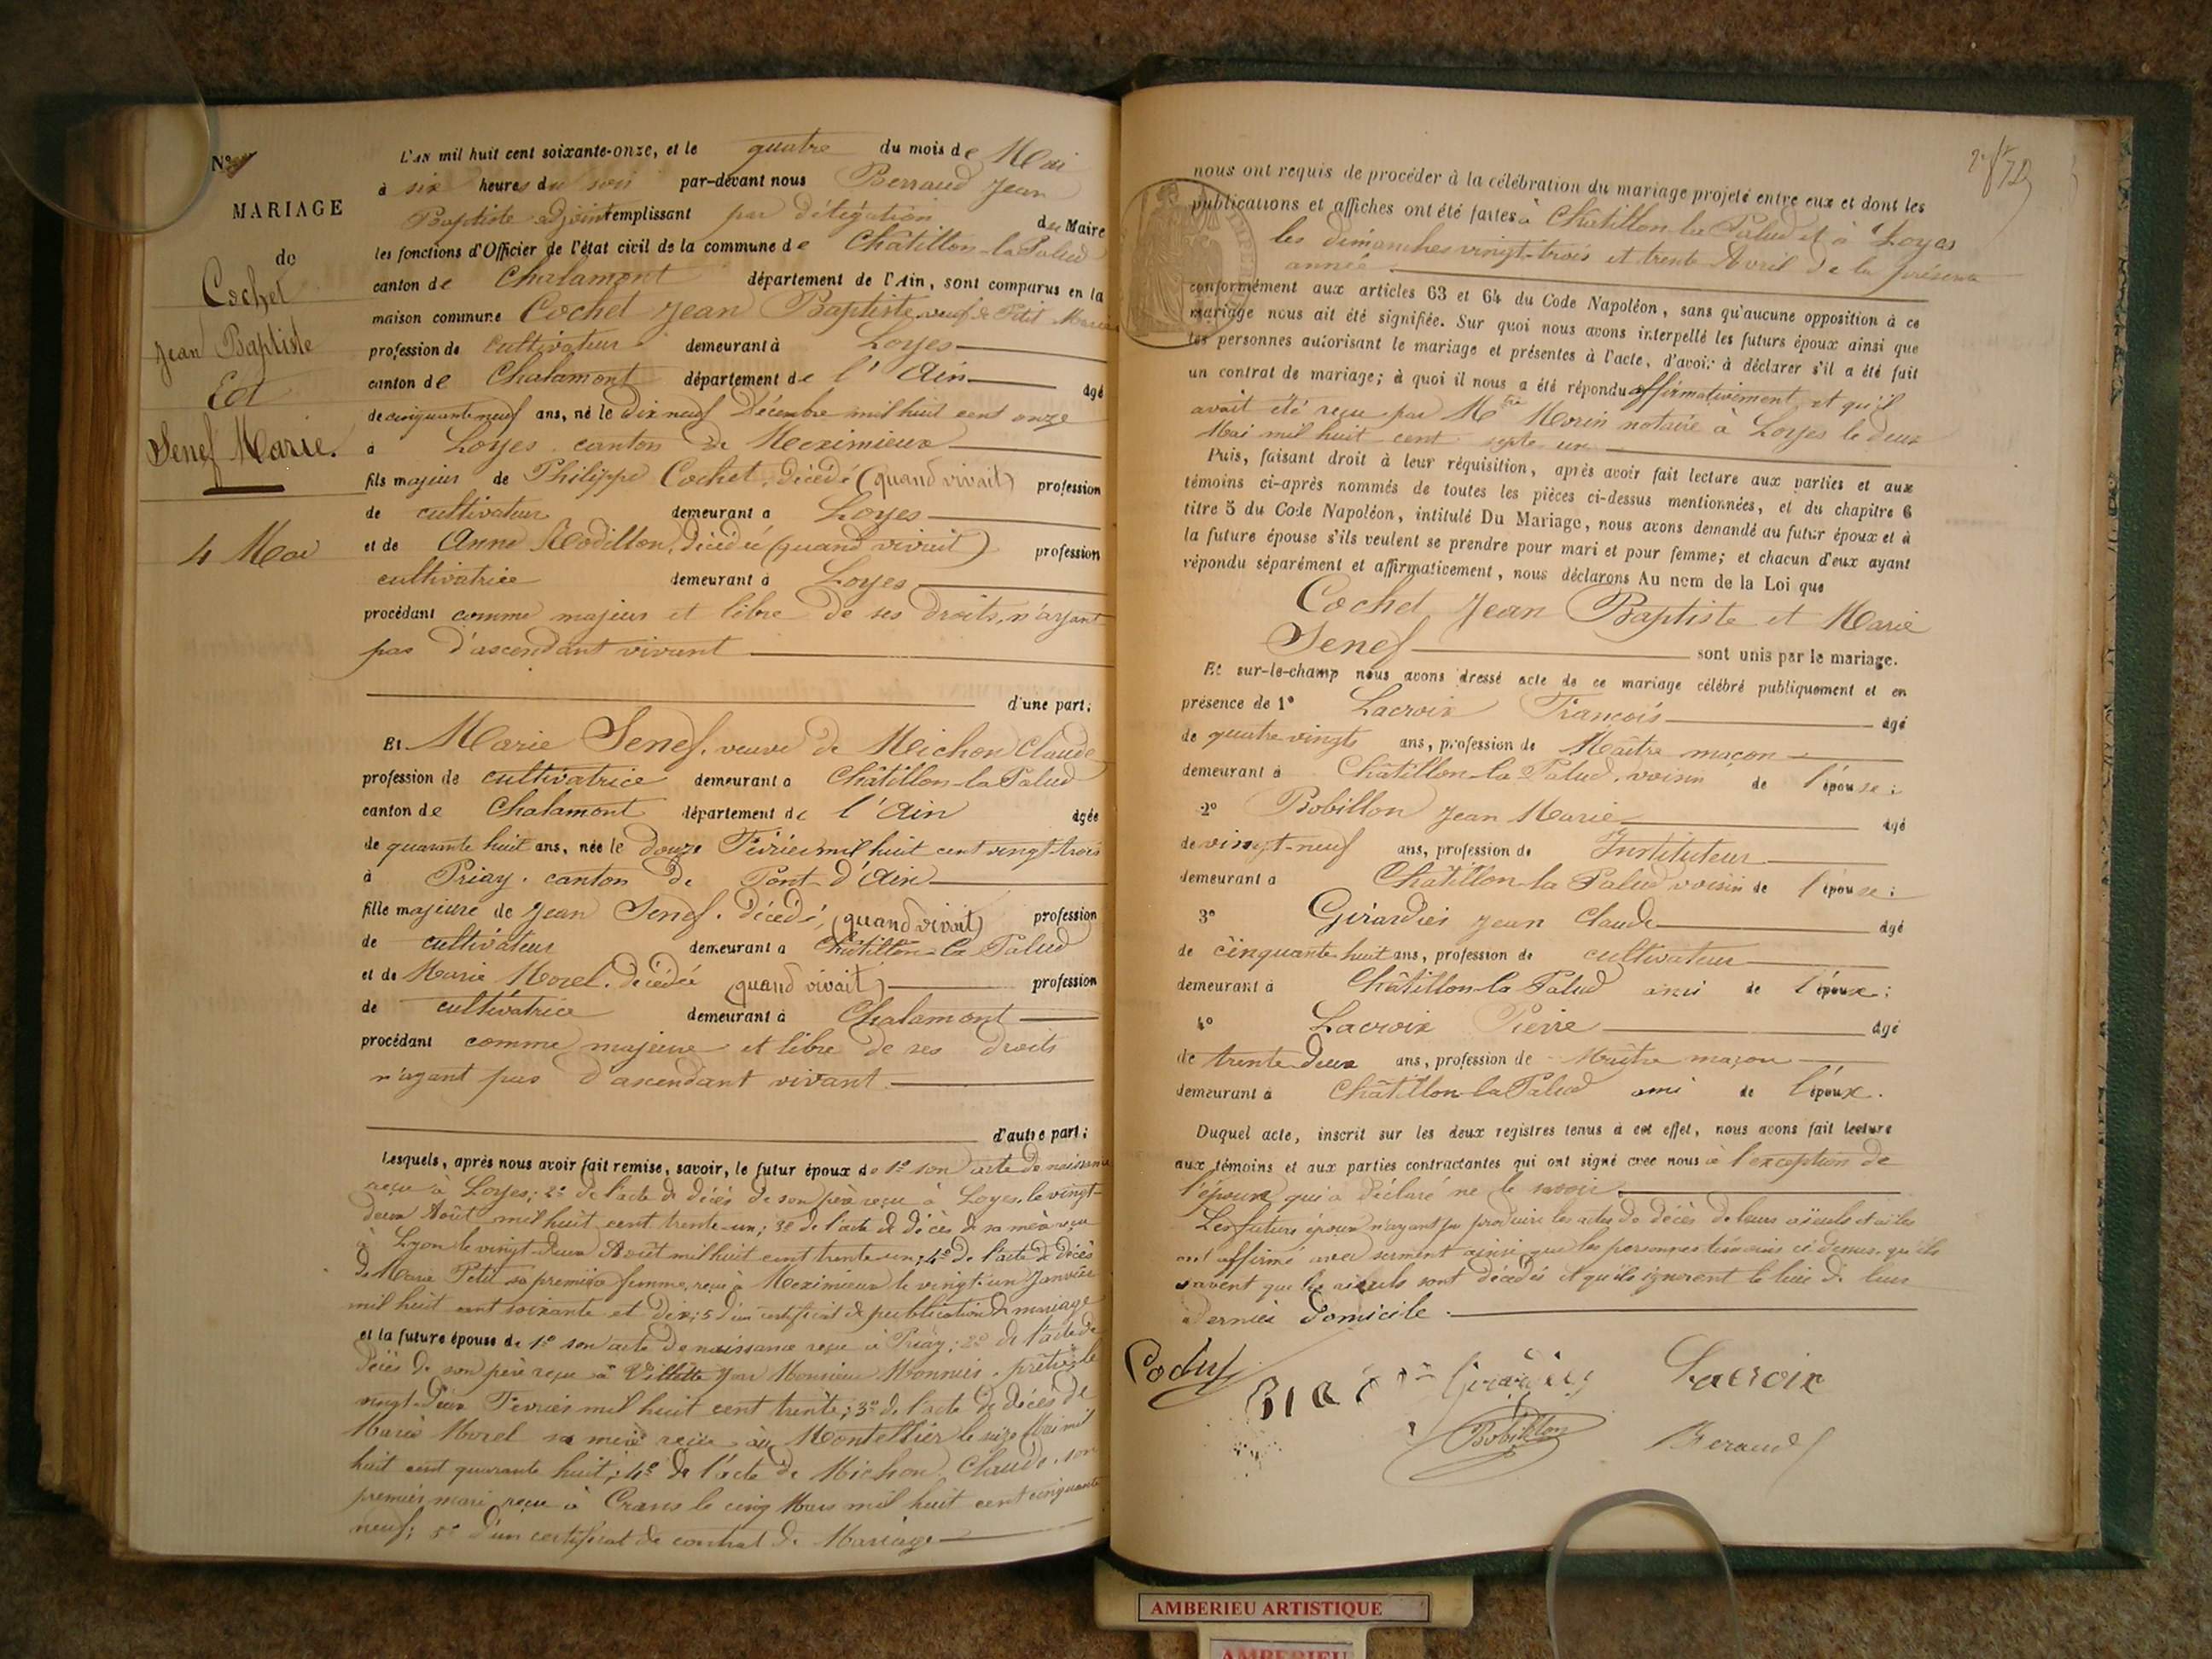 N°
MARIAGE
de
Cochet
Jean Baptiste
Et
Senef Marie.
4 Mai
L'AN mil huit cent soixante-onze, et le quatre du mois de Mai
à six heures du soir par-devant nous Berraud Jean
Baptiste adjoint remplissant par délégation du Maire
les fonctions d'Officier de l'état civil de la commune de Châtillon-la Palud
canton de Chalamont département de l'Ain, sont comparus en la
maison commune Cochet Jean Baptiste, veuf de Petit Marie
profession de cultivateur demeurant à Loyes
canton de Chalamont département de l'Ain âgé
de cinquante neuf ans, né le Dix neuf Décembre mil huit cent onze
à Loyes canton de Meximieux
fils majeur de Philippe Cochet, décédé (quand vivait) profession
de cultivateur demeurant à Loyes
et de Anne Modillon, décédée (quand vivait) profession
cultivatrice demeurant à Loyes
procédant comme majeur et libre de ses droits, n'ayant
pas d'ascendant vivant
d'une part;
Et Marie Senef, veuve de Michon Claude
profession de cultivatrice demeurant à Châtillon-la Palud
canton de Chalamont département de l'Ain âgée
de quarante huit ans, née le douze Février mil huit cent vingt-trois
à Priay, canton de Pont-d'Ain
fille majeure de Jean Senef, décédé, (quand vivait) profession
de cultivateur demeurant à Châtillon-la Palud
et de Marie Morel, décédée (quand vivait) profession
de cultivatrice demeurant à Chalamont
procédant comme majeure et libre de ses droits
n'ayant pas d'ascendant vivant
d'autre part;
Lesquels, après nous avoir fait remise, savoir, le futur époux de 1° son acte de naissance
reçu à Loyes; 2° de l'acte de décès de son père reçu à Loyes, le vingt-
deux Août mil huit cent trente-un; 3° de l'acte de décès de sa mère reçu
à Lyon le vingt-deux Août mil huit cent trente un; 4° de l'acte de décès
de Marie Petit sa première femme, reçu à Meximieux le vingt-un Janvier
mil huit cent soixante et dix; 5° d'un certificat de publication de mariage
et la future épouse de 1° son acte de naissance reçu à Priay; 2° de l'acte de
décès de son père reçu à Villette par Monsieur Monnier, prêtre, le
vingt-deux Février mil huit cent trente; 3° de l'acte de décès de
Marie Morel sa mère reçu au Montellier le seize Mai mil
huit cent quarante huit; 4° de l'acte de Michon Claude, son
premier mari reçu à Crans le cinq Mars mil huit cent cinquante
neuf; 5° d'un certificat de contrat de Mariage
nous ont requis de procéder à la célébration du mariage projeté entre eux et dont les
publications et affiches ont été faites à Châtillon-la Palud et à Loyes
les dimanches vingt-trois et trente Avril de la présente
année
conformément aux articles 63 et 64 du Code Napoléon, sans qu'aucune opposition à ce
mariage nous ait été signifiée. Sur quoi nous avons interpellé les futurs époux ainsi que
les personnes autorisant le mariage et présentes à l'acte, d'avoir à déclarer s'il a été fait
un contrat de mariage; à quoi il nous a été répondu affirmativement, et qu'il
avait été reçu par Mtre Morin notaire à Loyes le deux
Mai mil huit cent septe un
Puis, faisant droit à leur réquisition, après avoir fait lecture aux parties et aux
témoins ci-après nommés de toutes les pièces ci-dessus mentionnées, et du chapitre 6
titre 5 du Code Napoléon, intitulé Du Mariage, nous avons demandé au futur époux et à
la future épouse s'ils veulent se prendre pour mari et pour femme; et chacun d'eux ayant
répondu séparément et affirmativement, nous déclarons Au nom de la Loi que
Cochet Jean Baptiste et Marie
Senef sont unis par le mariage.
Et sur-le-champ nous avons dressé acte de ce mariage célébré publiquement et en
présence de 1° Lacroix François âgé
de quatre vingts ans, profession de Maître maçon
demeurant à Châtillon-la Palud, voisin de l'épouse;
2° Bobillon Jean Marie âgé
de vingt-neuf ans, profession de Instituteur
demeurant à Châtillon-la Palud voisin de l'épouse;
3° Girardier Jean Claude âgé
de cinquante huit ans, profession de cultivateur
demeurant à Châtillon-la Palud ami de l'époux;
4° Lacroix Pierre âgé
de trente deux ans, profession de Maître maçon
demeurant à Châtillon-la Palud ami de l'époux.
Duquel acte, inscrit sur les deux registres tenus à cet effet, nous avons fait lecture
aux témoins et aux parties contractantes qui ont signé avec nous à l'exception de
l'épouse qui a déclaré ne le savoir
Les futurs époux n'ayant pu produire les actes de décès de leurs aïeuls
ont affirmé avec serment ainsi que les personnes témoins ci-dessus qu'ils
savent que les aïeuls sont décédés et qu'ils ignorent le lieu de leur
dernier domicile.
Girardier Lacroix
Bobillon Beraud
AMBERIEU ARTISTIQUE
AMBERIEU